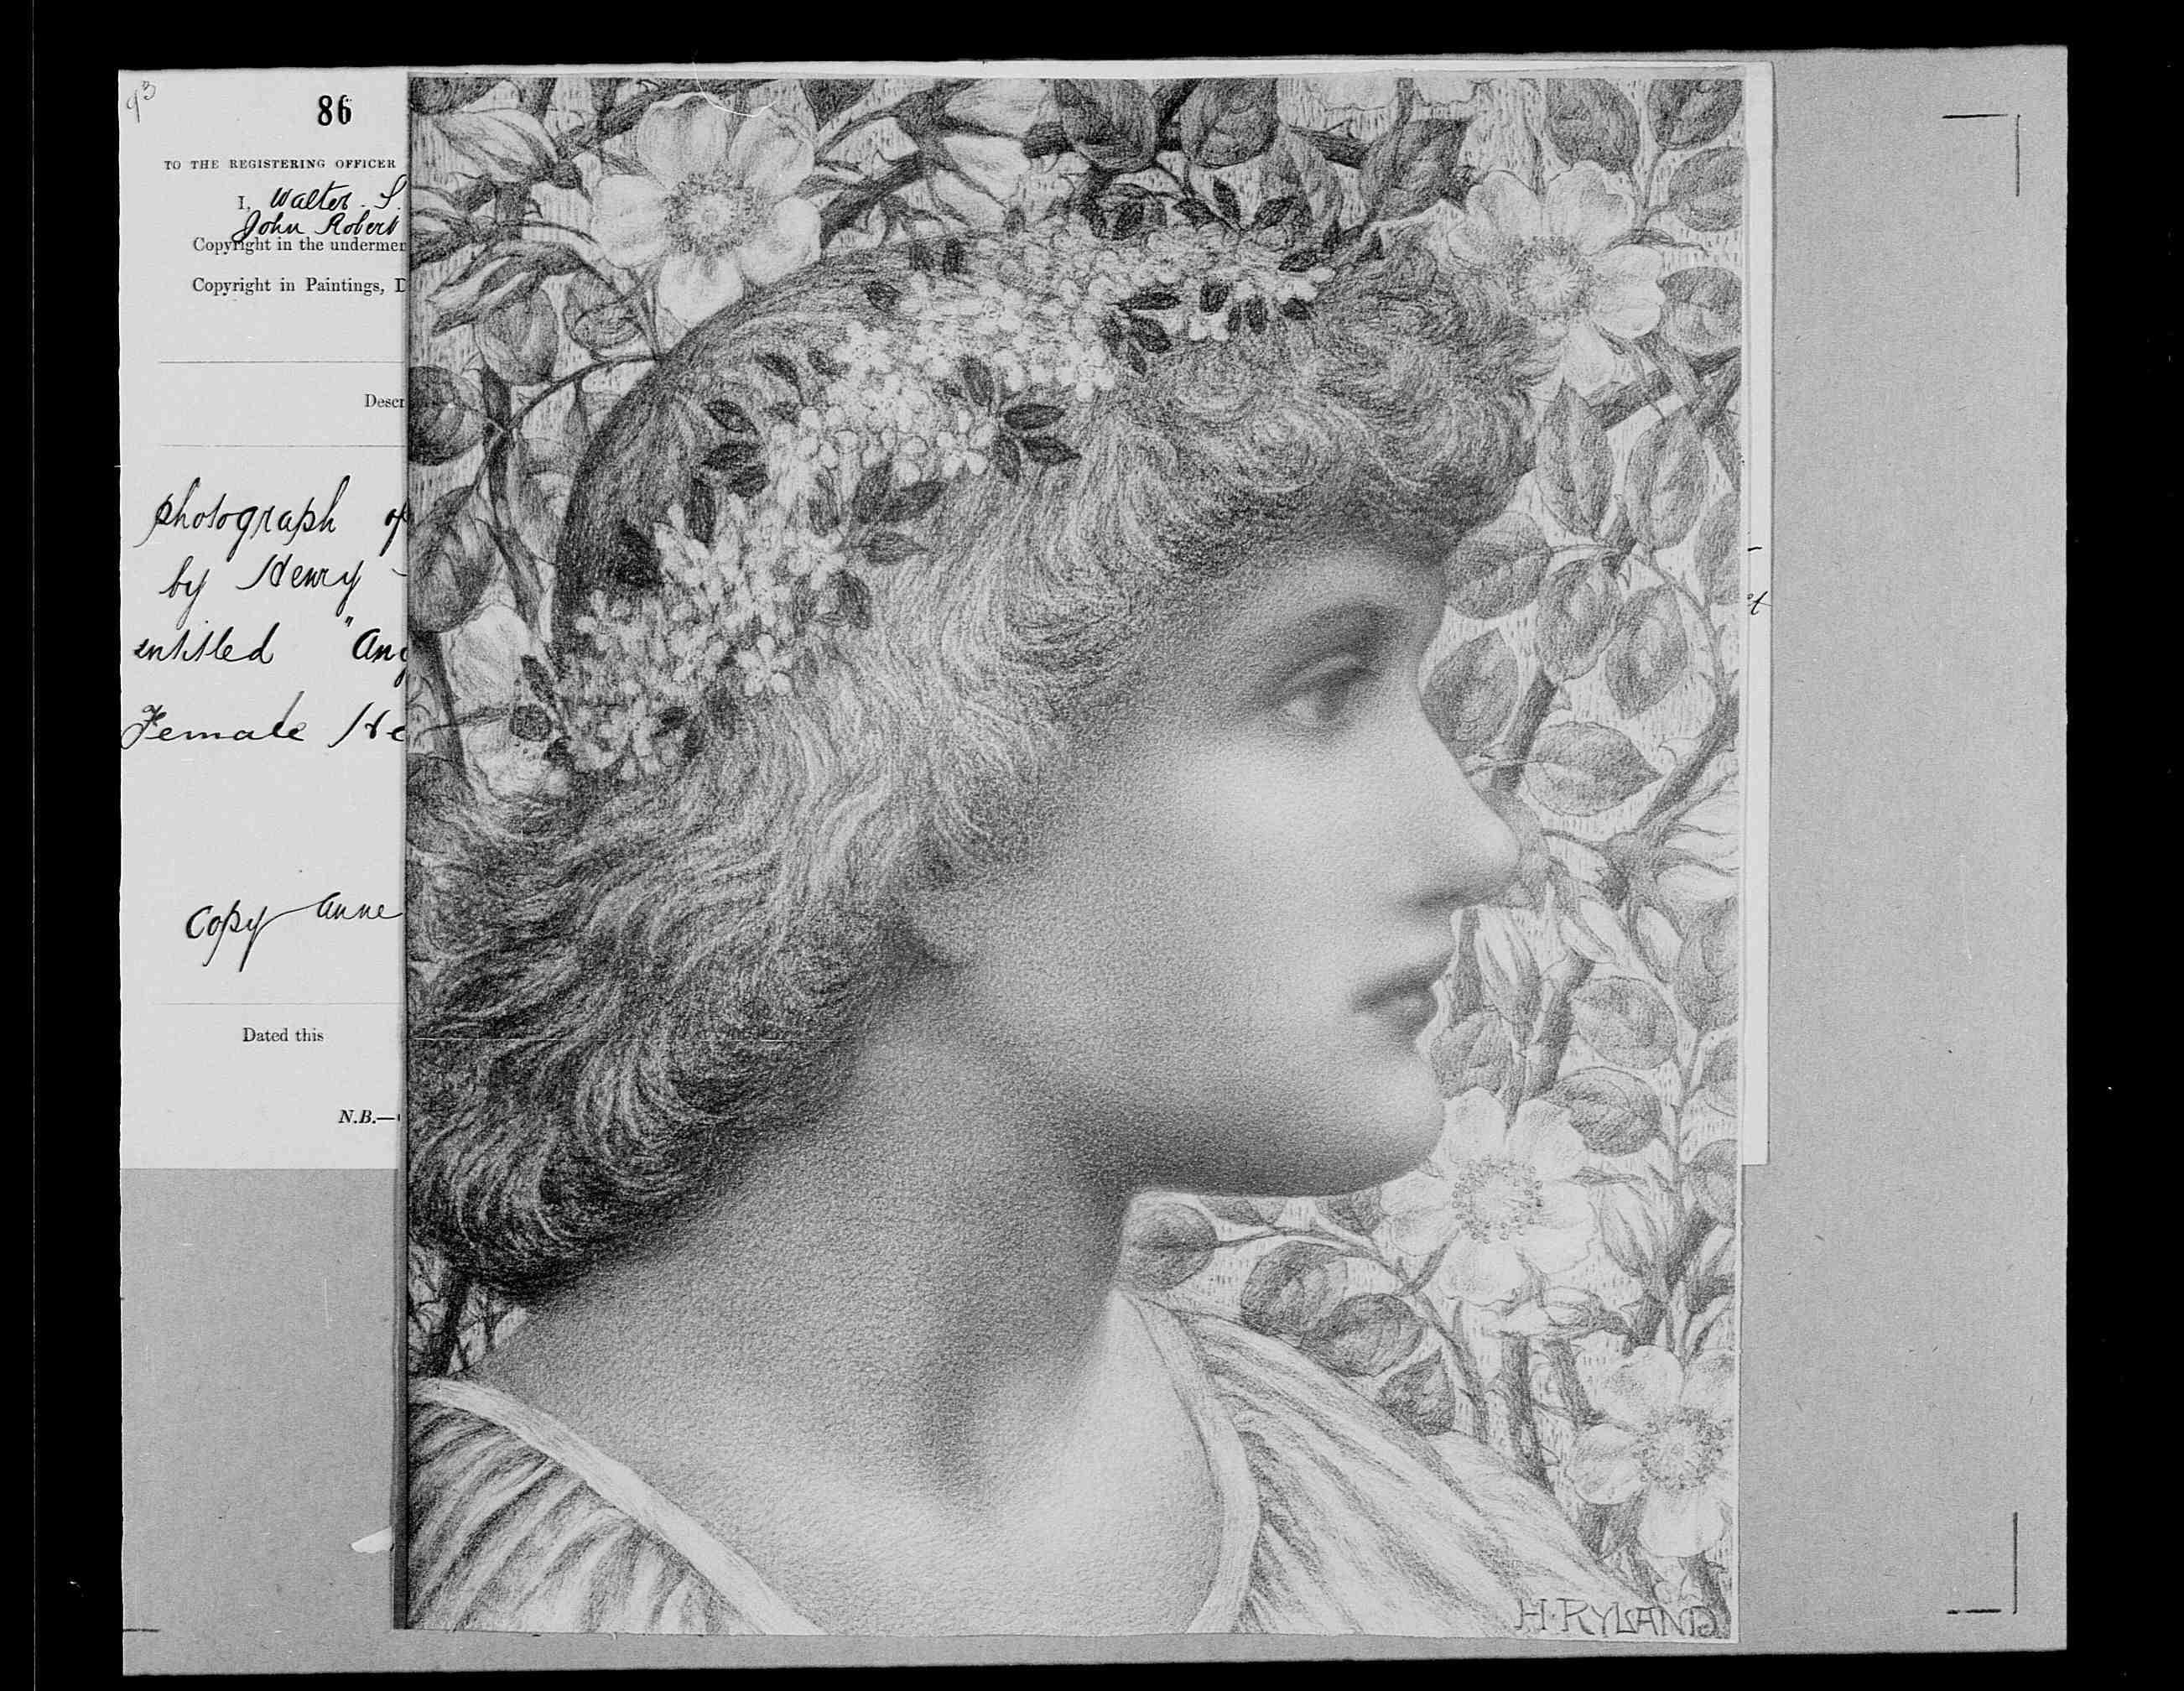 93
86
TO THE REGISTERING OFFICER
I, Walter. S.
John Robert
Copyright in the undermen
Copyright in Paintings, D
Descr
photograph of
by Henry
entitled "Ang
Female He
Copy anne
Dated this
N.B.—
H·RYLAND